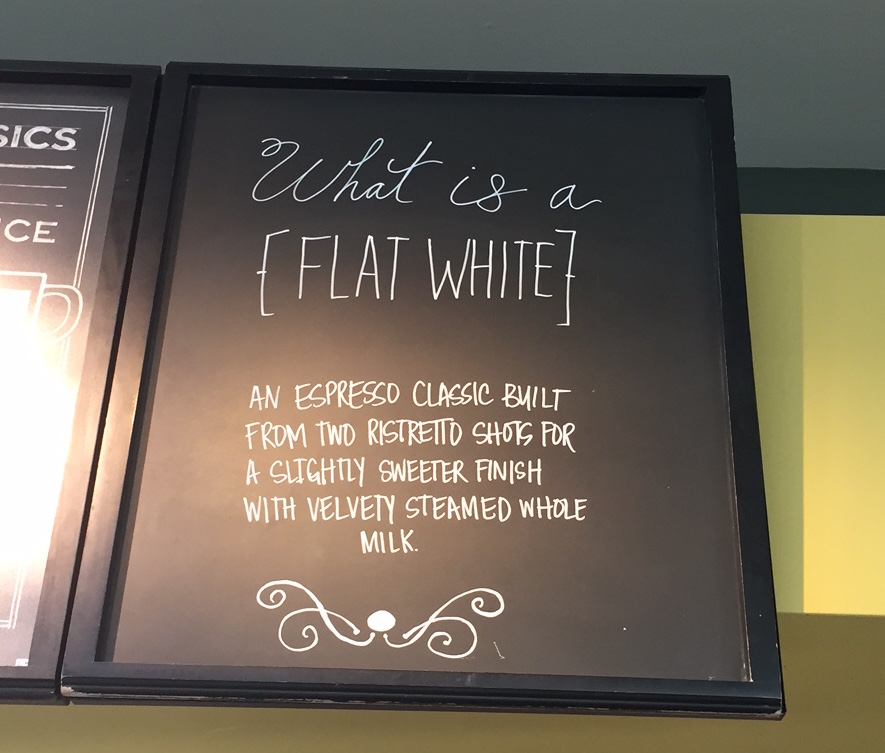 SICS
CE
What is a
[FLAT WHITE]
AN ESPRESSO CLASSIC BUILT
FROM TWO RISTRETTO SHOTS FOR
A SLIGHTLY SWEETER FINISH
WITH VELVETY STEAMED WHOLE
MILK.